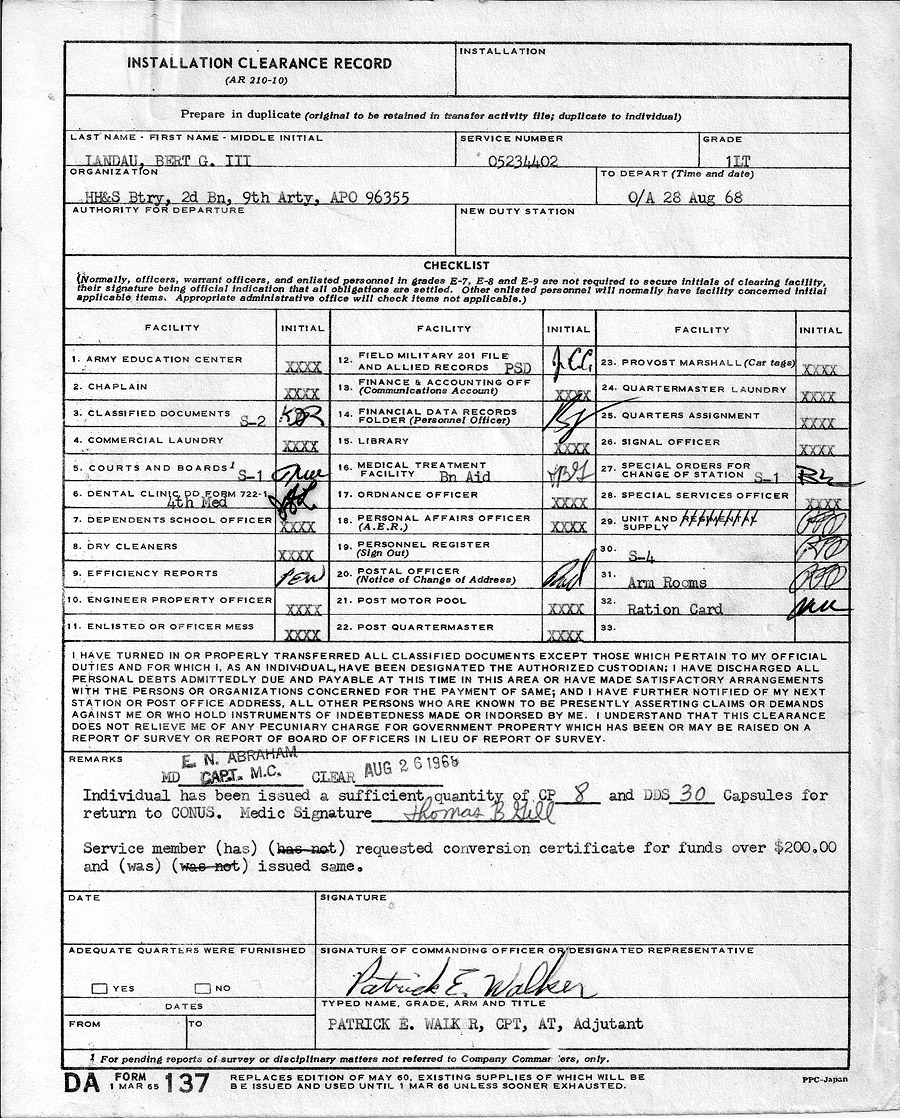 INSTALLATION CLEARANCE RECORD
(AR 210-10)
INSTALLATION
Prepare in duplicate (original to be retained in transfer activity file; duplicate to individual)
LAST NAME - FIRST NAME - MIDDLE INITIAL
SERVICE NUMBER
GRADE
LANDAU, BERT G. III
05234402
1LT
ORGANIZATION
TO DEPART (Time and date)
HH&S Btry, 2d Bn, 9th Arty, APO 96355
O/A 28 Aug 68
AUTHORITY FOR DEPARTURE
NEW DUTY STATION
CHECKLIST
(Normally, officers, warrant officers, and enlisted personnel in grades E-7, E-8 and E-9 are not required to secure initials of clearing facility,
their signature being official indication that all obligations are settled. Other enlisted personnel will normally have facility concerned initial
applicable items. Appropriate administrative office will check items not applicable.)
FACILITY INITIAL FACILITY INITIAL FACILITY INITIAL
1. ARMY EDUCATION CENTER XXXX
2. CHAPLAIN XXXX
3. CLASSIFIED DOCUMENTS S-2
4. COMMERCIAL LAUNDRY XXXX
5. COURTS AND BOARDS1 S-1
6. DENTAL CLINIC DD FORM 722-1
4th Med
7. DEPENDENTS SCHOOL OFFICER XXXX
8. DRY CLEANERS XXXX
9. EFFICIENCY REPORTS PEW
10. ENGINEER PROPERTY OFFICER XXXX
11. ENLISTED OR OFFICER MESS XXXX
12. FIELD MILITARY 201 FILE
AND ALLIED RECORDS PSD
13. FINANCE & ACCOUNTING OFF
(Communications Account) XXXX
14. FINANCIAL DATA RECORDS
FOLDER (Personnel Officer)
15. LIBRARY XXXX
16. MEDICAL TREATMENT
FACILITY Bn Aid TBG
17. ORDNANCE OFFICER XXXX
18. PERSONAL AFFAIRS OFFICER
(A.E.R.) XXXX
19. PERSONNEL REGISTER
(Sign Out)
20. POSTAL OFFICER
(Notice of Change of Address)
21. POST MOTOR POOL XXXX
22. POST QUARTERMASTER XXXX
23. PROVOST MARSHALL (Car tags) XXXX
24. QUARTERMASTER LAUNDRY XXXX
25. QUARTERS ASSIGNMENT XXXX
26. SIGNAL OFFICER XXXX
27. SPECIAL ORDERS FOR
CHANGE OF STATION S-1
28. SPECIAL SERVICES OFFICER XXXX
29. UNIT AND REGIMENTAL
SUPPLY
30. S-4
31. Arm Rooms
32. Ration Card
33.
I HAVE TURNED IN OR PROPERLY TRANSFERRED ALL CLASSIFIED DOCUMENTS EXCEPT THOSE WHICH PERTAIN TO MY OFFICIAL
DUTIES AND FOR WHICH I, AS AN INDIVIDUAL, HAVE BEEN DESIGNATED THE AUTHORIZED CUSTODIAN; I HAVE DISCHARGED ALL
PERSONAL DEBTS ADMITTEDLY DUE AND PAYABLE AT THIS TIME IN THIS AREA OR HAVE MADE SATISFACTORY ARRANGEMENTS
WITH THE PERSONS OR ORGANIZATIONS CONCERNED FOR THE PAYMENT OF SAME; AND I HAVE FURTHER NOTIFIED OF MY NEXT
STATION OR POST OFFICE ADDRESS, ALL OTHER PERSONS WHO ARE KNOWN TO BE PRESENTLY ASSERTING CLAIMS OR DEMANDS
AGAINST ME OR WHO HOLD INSTRUMENTS OF INDEBTEDNESS MADE OR INDORSED BY ME. I UNDERSTAND THAT THIS CLEARANCE
DOES NOT RELIEVE ME OF ANY PECUNIARY CHARGE FOR GOVERNMENT PROPERTY WHICH HAS BEEN OR MAY BE RAISED ON A
REPORT OF SURVEY OR REPORT OF BOARD OF OFFICERS IN LIEU OF REPORT OF SURVEY.
REMARKS
E. N. ABRAHAM
MD CAPT. M.C. CLEAR AUG 26 1968
Individual has been issued a sufficient quantity of CP 8 and DDS 30 Capsules for
return to CONUS. Medic Signature Thomas B Gill
Service member (has) (has not) requested conversion certificate for funds over $200.00
and (was) (was not) issued same.
DATE
SIGNATURE
ADEQUATE QUARTERS WERE FURNISHED
SIGNATURE OF COMMANDING OFFICER OR DESIGNATED REPRESENTATIVE
YES NO
Patrick E. Walker
DATES
TYPED NAME, GRADE, ARM AND TITLE
FROM TO
PATRICK E. WALK R, CPT, AT, Adjutant
1 For pending reports of survey or disciplinary matters not referred to Company Comman ers, only.
DA FORM 137
1 MAR 65
REPLACES EDITION OF MAY 60, EXISTING SUPPLIES OF WHICH WILL BE
BE ISSUED AND USED UNTIL 1 MAR 66 UNLESS SOONER EXHAUSTED.
PPC-Japan